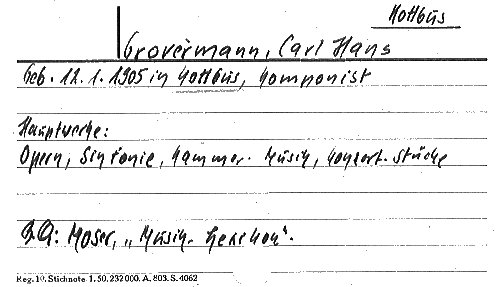 Kottbus
Grovermann, Carl Hans
Geb. 12. 1. 1905 in Kottbus, Komponist
Hauptwerke:
Opern, Sinfonie, Kammer-Musik, Konzert-Stücke
B.Q: Moser, „Musik-Lexikon".
Reg. 10. Stichnote 1. 50. 232000. A. 803. S. 4062